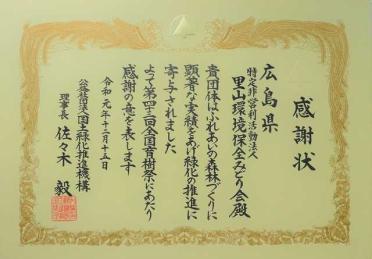 感謝状
広島県
特定非営利活動法人
里山環境保全みどり会殿
貴団体はふれあいの森林づくりに
顕著な実績をあげ緑化の推進に
寄与されました
よって第四十三回全国育樹祭にあたり
感謝の意を表します
令和元年十二月十五日
公益社団法人国土緑化推進機構
理事長 佐々木 毅